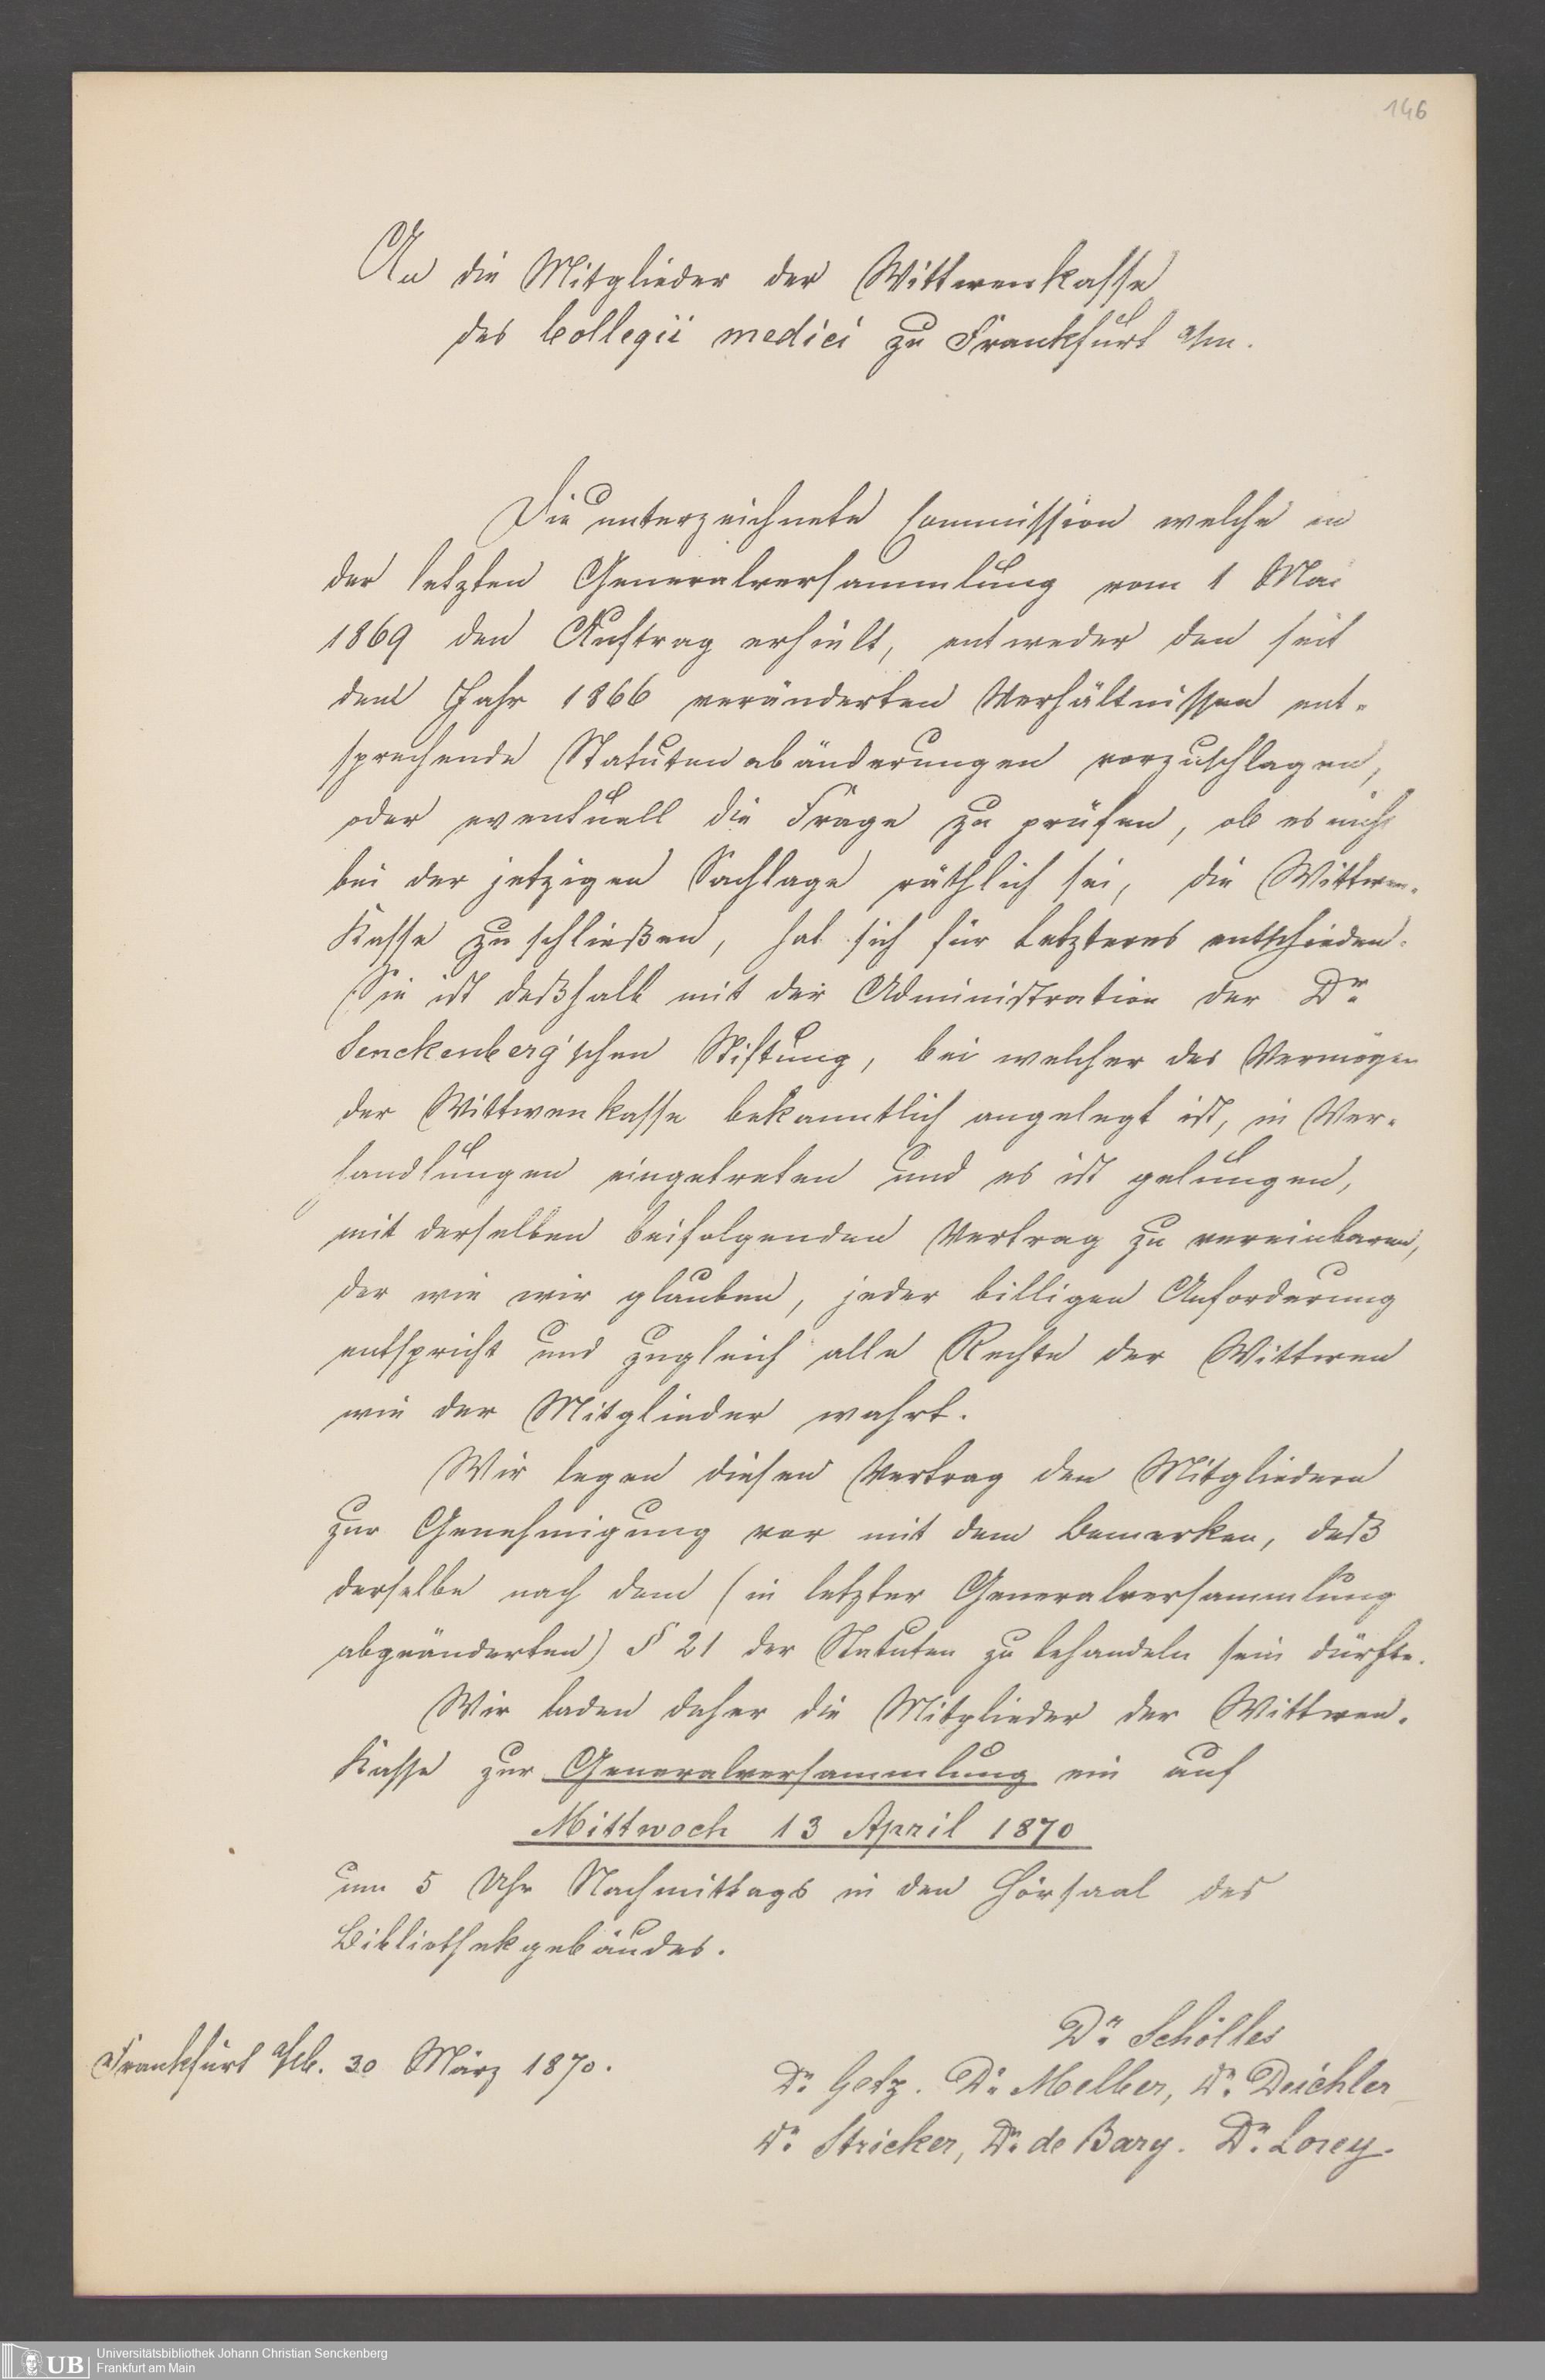 146
An die Mitglieder der Wittwenkasse
des Collegii medici zu Frankfurt a/m.
Die unterzeichnete Commission welche in
der letzten Generalversammlung vom 1 Mai
1869 den Auftrag erhielt, entweder den seit
dem Jahr 1866 veränderten Verhältnissen ent-
sprechende Statutenabänderungen vorzuschlagen,
oder eventuell die Frage zu prüfen, ob es nicht
bei der jetzigen Sachlage räthlich sei, die Wittwen-
Kasse zu schließen, hat sich für Letzteres entschieden.
Sie ist deßhalb mit der Administration der Dr.
Senckenberg'schen Stiftung, bei welcher das Vermögen
der Wittwenkasse bekanntlich angelegt ist, in Ver-
handlungen eingetreten und es ist gelungen,
mit derselben beifolgenden Vertrag zu vereinbaren,
der wie wir glauben, jeder billigen Anforderung
entspricht und zugleich alle Rechte der Wittwen
wie der Mitglieder wahrt.
Wir legen diesen Vertrag den Mitgliedern
zur Genehmigung vor mit dem Bemerken, daß
derselbe nach dem (in letzter Generalversammlung
abgeänderten) § 21 der Statuten zu behandeln sein dürfte.
Wir laden daher die Mitglieder der Wittwen-
Kasse zur Generalversammlung ein auf
Mittwoch 13 April 1870
um 5 Uhr Nachmittags in den Hörsaal des
Bibliothekgebäudes.
Frankfurt a/M. 30 März 1870.
Dr. Schölles
Dr. Getz. Dr. Melber, Dr. Deichler
Dr. Stricker, Dr. de Bary. Dr. Lorey.
UB
Universitätsbibliothek Johann Christian Senckenberg
Frankfurt am Main